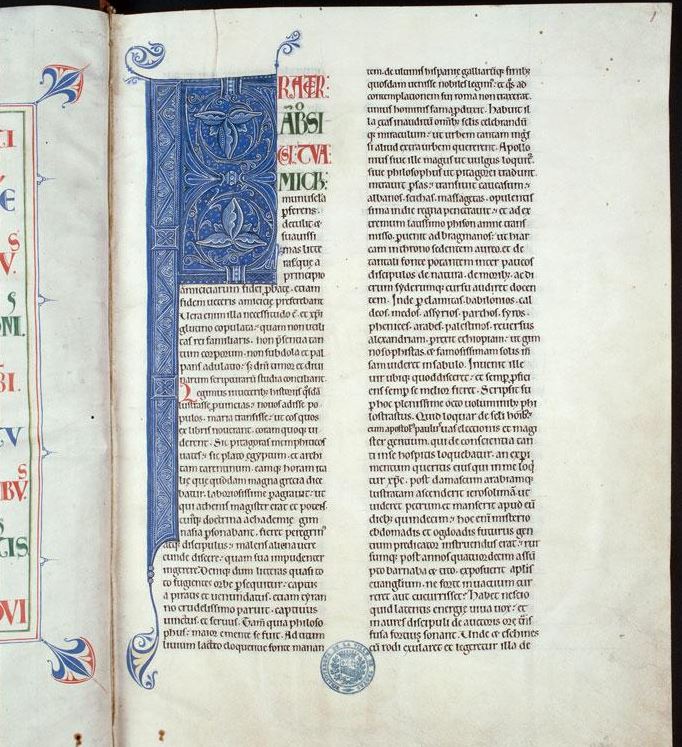 FRATER
ABSI
GI TVA
MICH
munuscla
pferens
detulit &
suavissi
mas littε
ras que a
principio
amiciciarum fidei pbate etiam
fidem ueteris amicicie preferebant
Vera enim illa necessitudo ē & xpi
glutino copulata quam non utili
tas rei familiaris non psentia tan
tum corporum non subdola et pal
pans adulatio s; dni timor et diui
narum scripturarum studia conciliant
Legimus in ueterib; historiis qsdā
lustrasse puincias nouos adisse po
pulos maria transisse ut eos quos
ex libris nouerant coram quoq; ui
derent Sic pitagoras memphiticos
uates sic plato egyptum et archi
tam tarentinum eamq; horam ita
lię que quondam magna grecia dice
batur laboriosissime pagrauit ut
qui athenis magister erat et potens
cuiusq; doctrina achademię gim
nasia psonabant fieret peregrin'
atq; discipulus malens aliena uere
cunde discere quam sua impudenter
ingerere Deniq; dum litteras quasi to
to fugientes orbe psequitur captus
a piratis et uenundatus etiam tyran
no crudelissimo paruit captiuus
uinctus et seruus Tam quia philoso
phus maior emente se fuit Ad titum
liuium lacteo eloquentie fonte manan
tem de ultimis hispanię galliarūq; finib;
quosdam uenisse nobiles legim' et qs ad
contemplationem sui roma non traxerat
unius hominis fama pduxit Habuit il
la etas inauditū omib; sclis celebrandū
q; miraculum ut urbem tantam ingssi
aliud extra urbem quererent Apollo
nius siue ille magus ut uulgus loquit'
siue philosophus ut pitagorei tradunt
intrauit psas transiuit caucasum
albanos scithas massagetas opulentis
sima indię regna penetrauit et ad ex
tremum latissimo phison amne trans
misso puenit ad bragmanos ut hiar
cam in throno sedentem aureo et de
tantali fonte potantem inter paucos
discipulos de natura de morib; ac di
erum syderumq; cursu audiret docen
tem Inde p elamitas babilonios cal
deos medos assyrios parthos syros
phenices arabes palestinos reuersus
alexandriam perrexit ethiopiam ut gim
nosophistas et famosissimam solis m
sam uideret in sabulo Inuenit ille
uir ubiq; quod disceret et semp pfici
ens semp se melior fieret Scripsit su
p hoc plenissime octo uoluminib; phi
lostratus Quid loquar de scli hoib;
cum apostol' paulus uas electionis et magi
ster gentium qui de conscientia tan
ti in se hospitis loquebatur an expi
mentum queritis eius qui in me loq
tur xpc post damascum arabiamq;
lustratam ascenderit ierosolimā ut
uideret petrum et manserit apud eū
dieb; quindecim hoc enī misterio
ebdomadis et ogdoadis futurus gen
tium predicator instruendus erat rur
sumq; post annos quatuordecim assū
pto barnaba et tito exposuerit aplis
euuangelium ne forte in uacuum cur
reret aut cucurrisset Habet nescio
quid latentis energię uiua uox et
in aures discipuli de auctoris ore trās
fusa fortius sonant Unde et eschines
cū rodi exularet et legeretur illa de